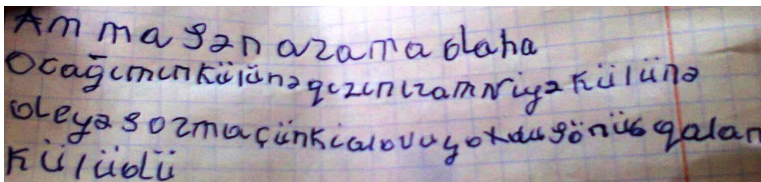 Amma sən arama daha
Ocağımın külünə qızınıram Niyə külünə
deyə sorma çünki alovu yoxdu sönüb qalan
külüdü